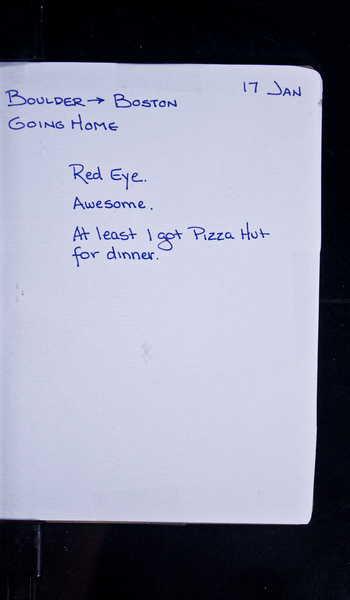 17 JAN
BOULDER → BOSTON
GOING HOME
Red Eye.
Awesome.
At least I got Pizza Hut
for dinner.